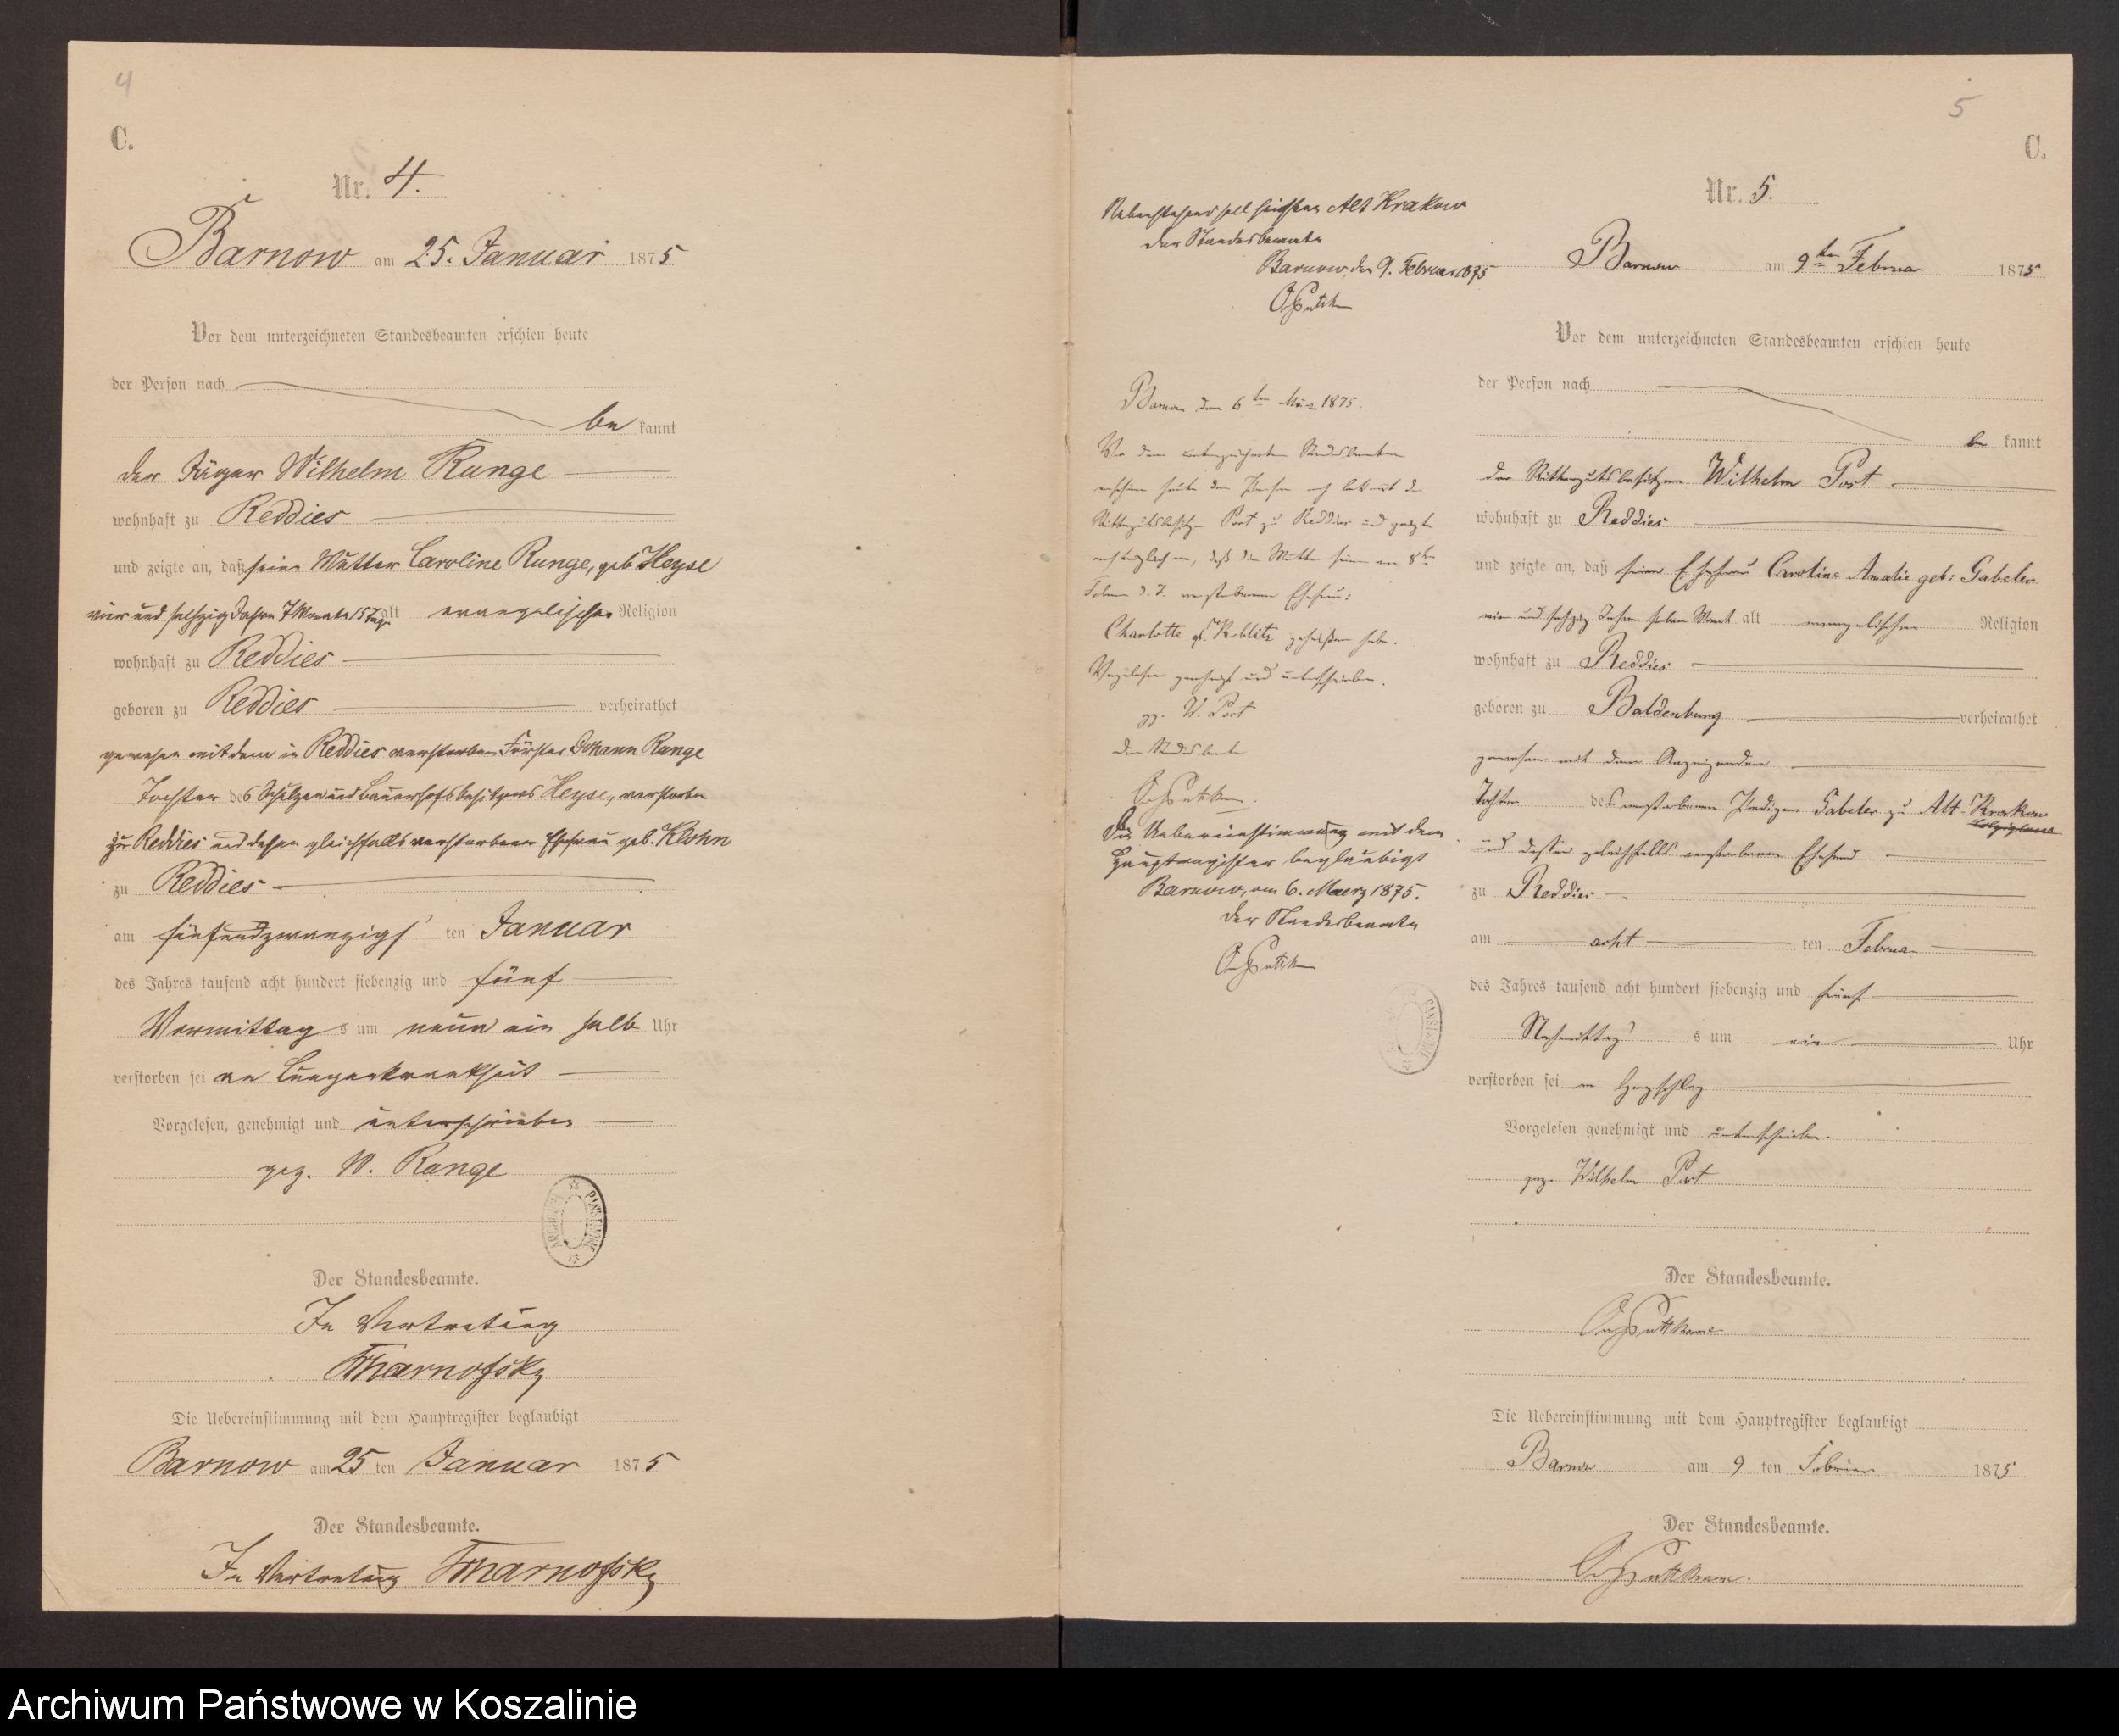 4
C.
Nr. 4.
Barnow am 25. Januar 1875
Vor dem unterzeichneten Standesbeamten erschien heute
der Person nach
be kannt
der Jäger Wilhelm Runge
wohnhaft zu Reddies
und zeigte an, daß seine Mutter Caroline Runge, geb. Heyse
vier und sechzig Jahre 7 Monate 15 Tage alt evangelischer Religion
wohnhaft zu Reddies
geboren zu Reddies verheirathet
gewesen mit dem in Reddies verstorbenen Förster Johann Runge
Tochter des Schulzen und Bauerhofsbesitzers Heyse, verstorben
zu Reddies und dessen gleichfalls verstorbener Ehefrau geb. Klohn
zu Reddies
am fünfundzwanzigs ten Januar
des Jahres tausend acht hundert siebenzig und fünf
Vormittag s um neun ein halb Uhr
verstorben sei an Lungenkrankheit
Vorgelesen, genehmigt und unterschrieben
gez. W. Runge
Der Standesbeamte.
In Vertretung
Die Uebereinstimmung mit dem Hauptregister beglaubigt
Barnow am 25 ten Januar 1875
Der Standesbeamte.
In Vertretung
5
C.
Nr. 5.
Barnow am 9ten Februar 1875
Vor dem unterzeichneten Standesbeamten erschien heute
der Person nach
be kannt
der Rittergutsbesitzer Wilhelm Post
wohnhaft zu Reddies
und zeigte an, daß seine Ehefrau Caroline Amalie geb: Gabeler
vier und sechzig Jahre sieben Monat alt evangelischer Religion
wohnhaft zu Reddies
geboren zu Baldenburg verheirathet
gewesen mit dem Anzeigenden
Tochter des verstorbenen Prediger Gabeler zu Alt-Krakow
und dessen gleichfalls verstorbenen Ehefrau
zu Reddies
am acht ten Februar
des Jahres tausend acht hundert siebenzig und fünf
Nachmittag s um ein Uhr
verstorben sei an Herzschlag
Vorgelesen genehmigt und unterschrieben.
gez. Wilhelm Post
Der Standesbeamte.
Die Uebereinstimmung mit dem Hauptregister beglaubigt
Barnow am 9 ten Februar 1875
Der Standesbeamte.
Nebenstehend soll heißen Alt Krakow
Der Standesbeamte
Barnow, den 9. Februar 1875
Barnow den 6ten März 1875.
Vor dem unterzeichneten Standesbeamten
erschien heute der Person nach bekannt der
Rittergutsbesitzer Post zu Reddies und zeigte
nachträglich an, daß die Mutter seiner am 8ten
Februar d. J. verstorbenen Ehefrau:
Charlotte geb. Koblitz geheißen habe.
Vorgelesen genehmigt und unterschrieben.
gz. W. Post
Der Standesbeamte
Die Uebereinstimmung mit dem
Hauptregister beglaubigt
Barnow, am 6. Maerz 1875.
Der Standesbeamte
Archiwum Państwowe w Koszalinie